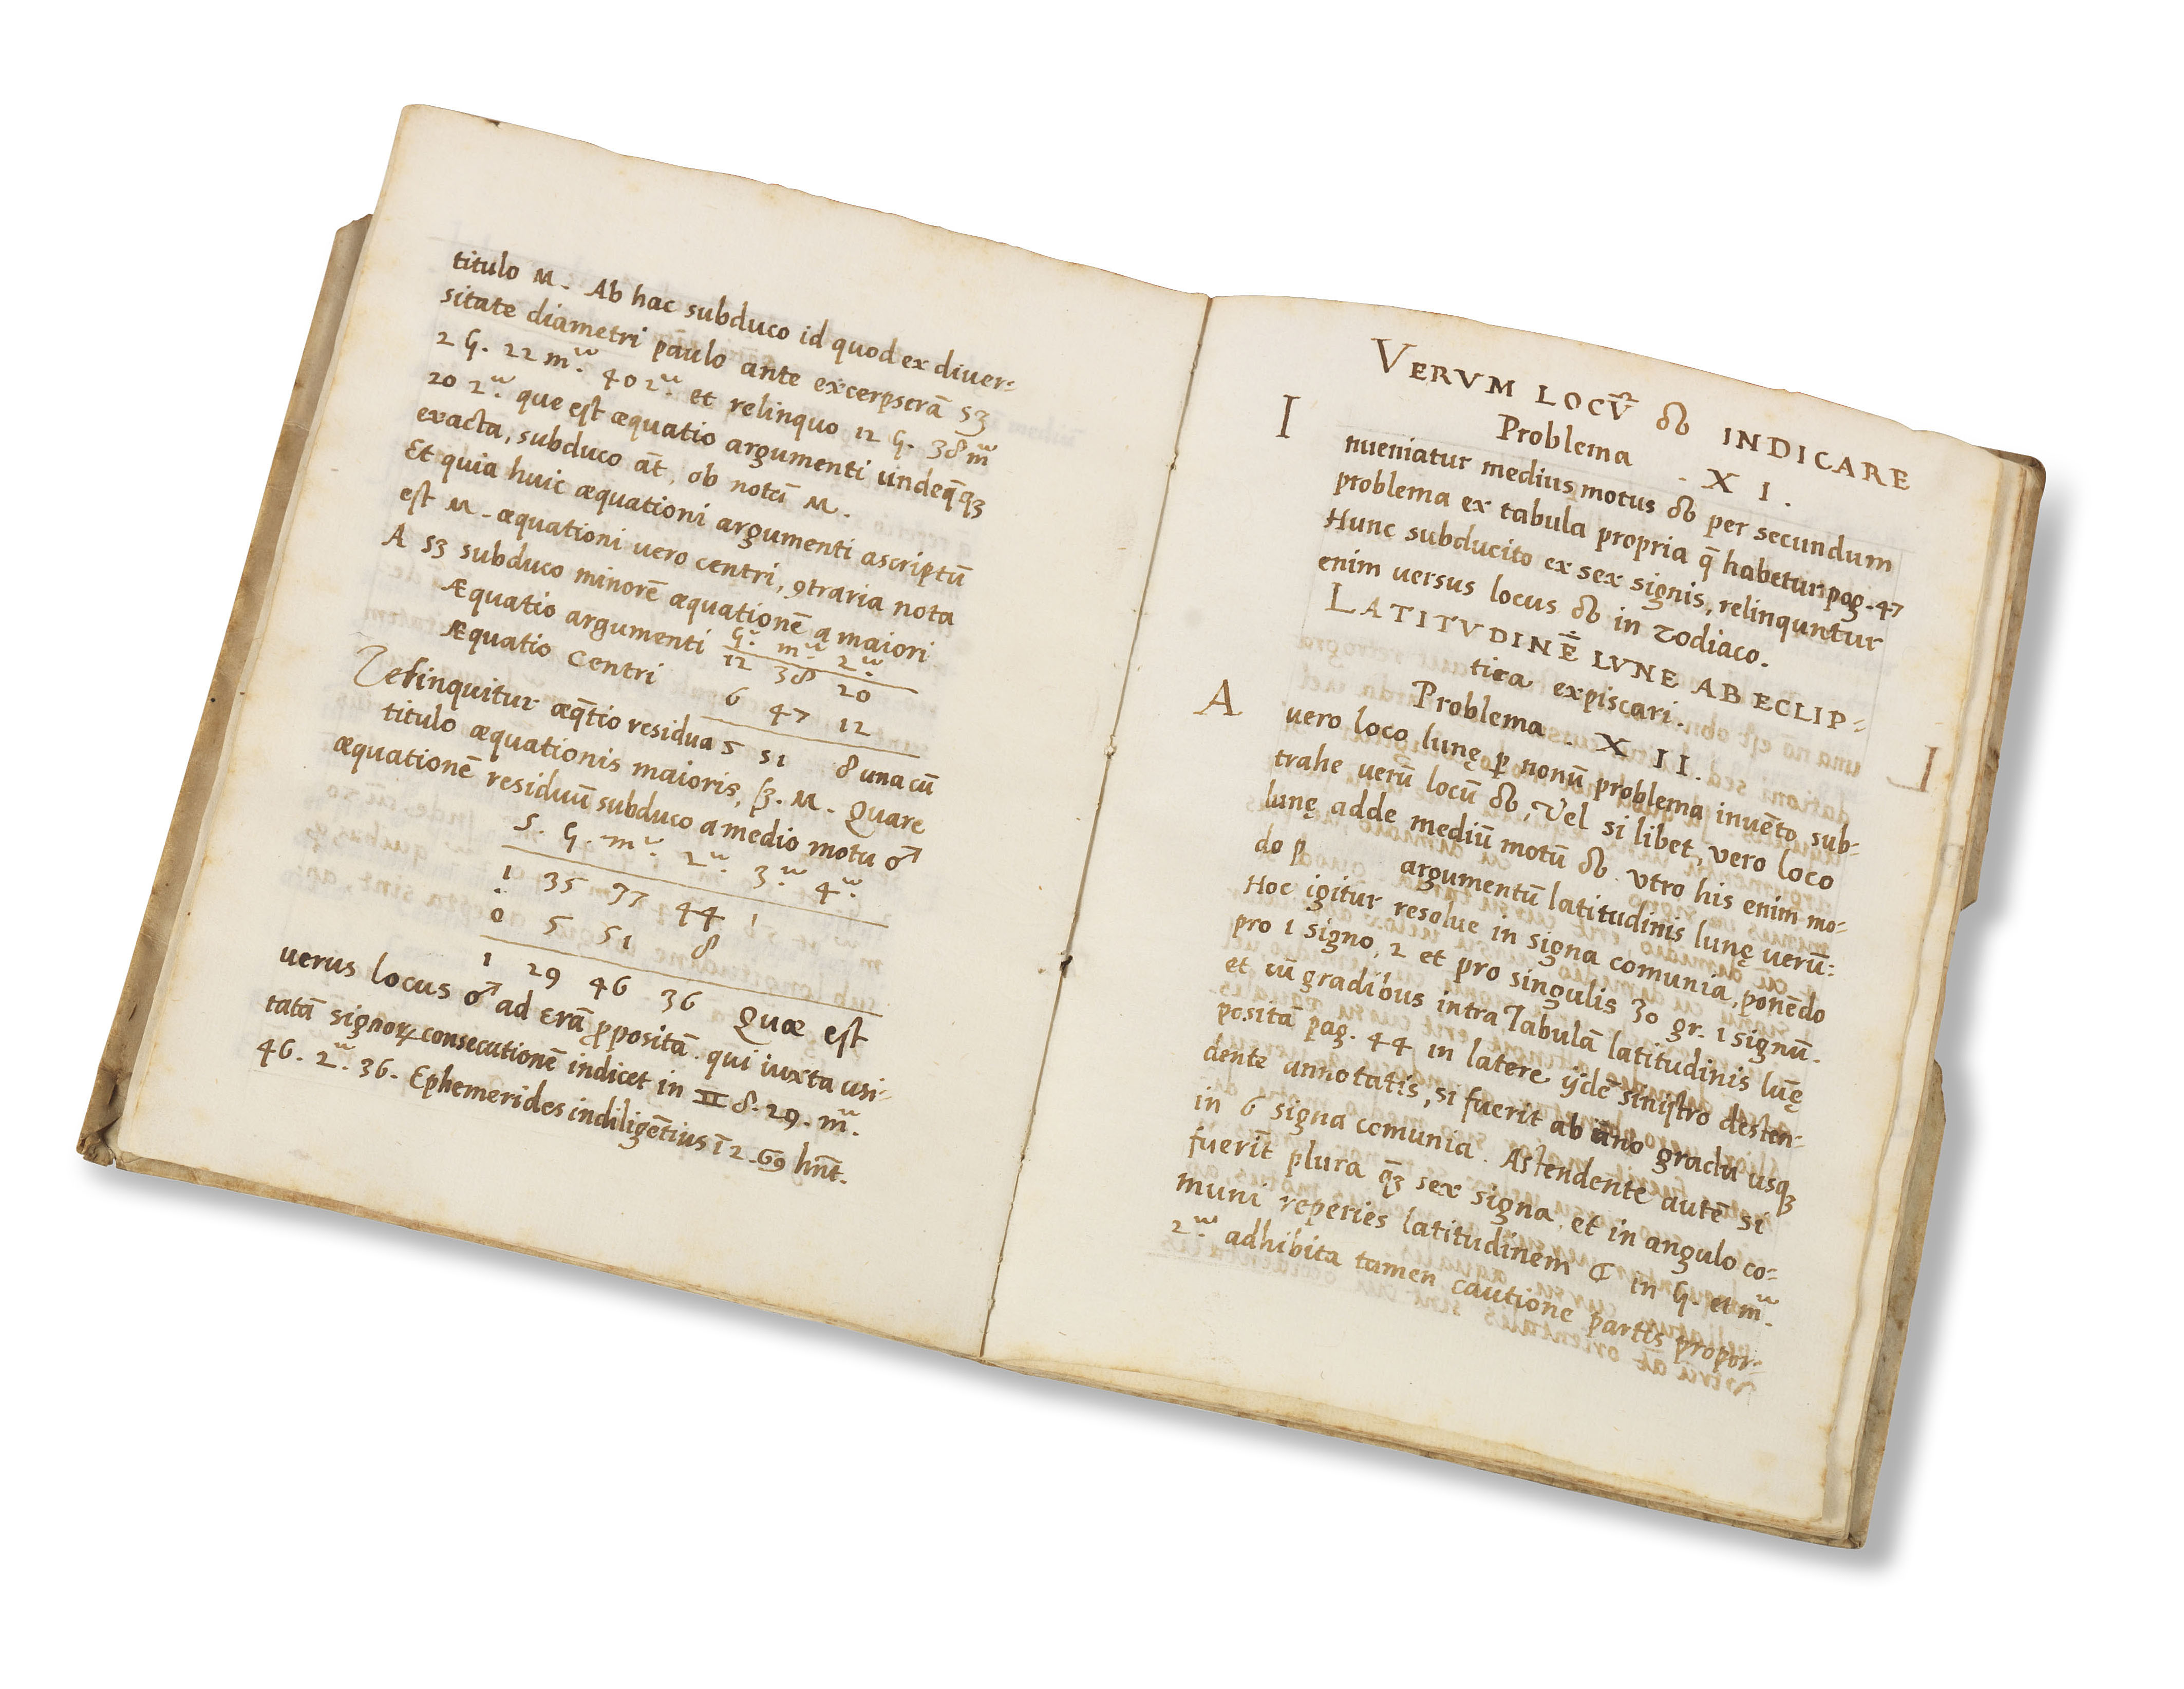 titulo M. Ab hac subduco id quod ex diuer-
sitate diametri paulo ante excerpserā sʒ
2 G. 22 mᵃ. 40 2ᵃ. et relinquo 12 G. 38 mᵃ
20 2ᵃ. que est æquatio argumenti undeq̄qʒ
exacta, subduco āt, ob notā M.
Et quia huic æquationi argumenti ascriptū
est M. æquationi uero centri, ꝯtraria nota
A sʒ subduco minorē æquationē a maiori
G. mᵃ. 2ᵃ.
Æquatio argumenti 12 38 20
Æquatio Centri 6 47 12
Relinquitur æq̄tio residua 5 51 8 una cū
titulo æquationis maioris, sʒ. M. Quare
æquationē residuū subduco a medio motu ♂
S. G. mᵃ. 2ᵃ. 3ᵃ. 4ᵃ.
1 35 37 44
0 5 51 8
1 29 46 36 Quæ est
uerus locus ♂ ad erā ꝓpositā. qui iuxta usi-
tatā signoꝝ consecutionē indicet in ♊ 8. 29. mᵃ.
46. 2ᵃ. 36. Ephemerides indiligētius ī 2. hn̄t.
VERVM LOCV̄ ☊ INDICARE
Problema . X I .
I nueniatur medius motus ☊ per secundum
problema ex tabula propria q̄ habetur pag. 47
Hunc subducito ex sex signis, relinquntur
enim uersus locus ☊ in zodiaco.
LATITVDINĒ LVNE AB ECLIP-
tica expiscari.
Problema . X II .
A uero loco lunę ꝑ nonū problema inuēto, sub-
trahe uerū locū ☊, Vel si libet, vero loco
lunę adde mediū motū ☊. Vtro his enim mo-
do ꝑ argumentū latitudinis lunę uerū:
Hoc igitur resolue in signa comunia, ponēdo
pro 1 signo, 2 et pro singulis 30 gr. 1 signū.
et cū gradibus intra Tabulā latitudinis lunę
positā pag. 44 in latere ijdē sinistro descen-
dente annotatis, si fuerit ab uno gradu usqʒ
in 6 signa comunia. Ascendente autē si
fuerit plura q̄ʒ sex signa. et in angulo co-
muni reperies latitudinem ☾ in G. et mᵃ.
2ᵃ. adhibita tamen cautione partis propor-